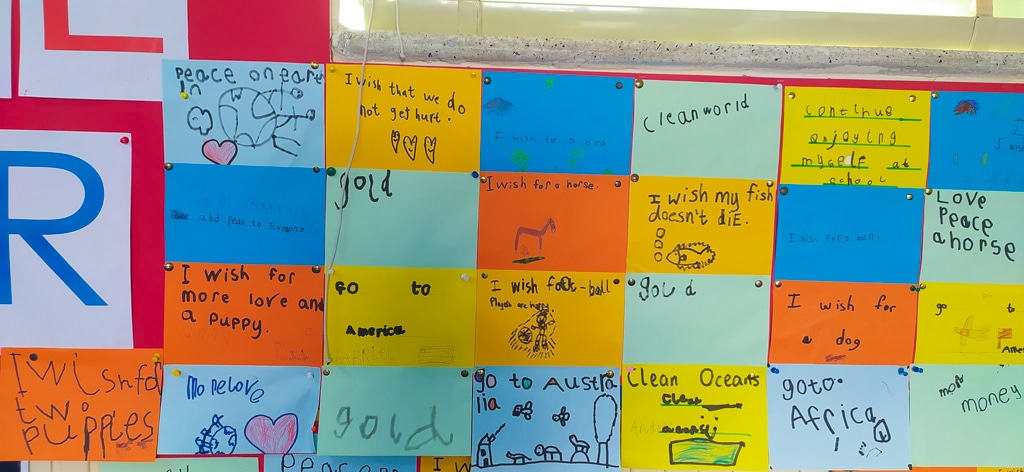 R
Peace on eare
in
I wish that we do
not get hurt.
I wish for a bird
cleanworld
continue
enjoying
myself at
school
I wis
and peas to Evryone
gold
I wish for a horse.
I wish my fish
doesn't diE.
I wish for a ball
LOVE
Peace
a horse
I wish for
more love and
a puppy.
go to
America
I wish foot-ball
Players are happy
gold
I wish for
a dog
go to
Amer
I wish fo
twi
puppies
More love
gold
go to Austra
lia
Clean Oceans
Clean
goto
Africa
more
money
I w